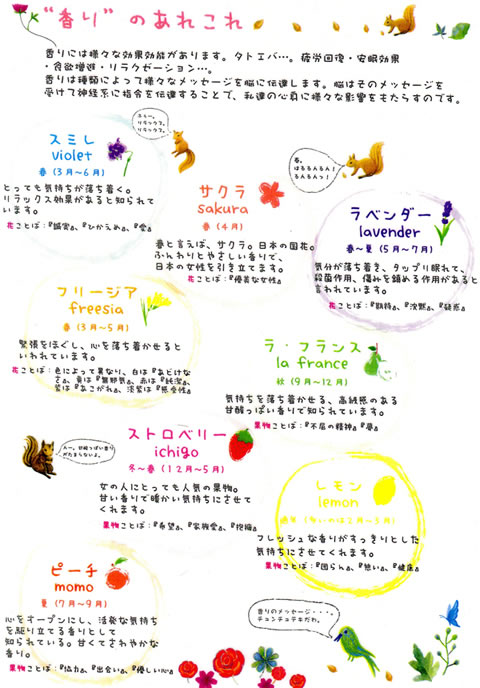 "香り"のあれこれ
香りには様々な効果効能があります。タトエバ…。疲労回復・安眠効果
・食欲増進・リラクゼーション…。
香りは種類によって様々なメッセージを脳に伝達します。脳はそのメッセージを
受けて神経系に指令を伝達することで、私達の心身に様々な影響をもたらすのです。
スミレ
violet
春（3月〜6月）
とっても気持ちが落ち着く。
リラックス効果があると知られて
います。
花ことば：『誠実』、『ひかえめ』、『愛』
リラックス。
リラックス。
サクラ
sakura
春（4月）
春と言えば、サクラ。日本の国花。
ふんわりとやさしい香りで、
日本の女性を引き立てます。
花ことば：『優美な女性』
春。
はるるんるん！
るんるんっ！
ラベンダー
lavender
春〜夏（5月〜7月）
気分が落ち着き、タップリ眠れて、
殺菌作用、傷みを鎮める作用があると
言われています。
花ことば：『期待』、『沈黙』、『疑惑』
フリージア
freesia
春（3月〜5月）
緊張をほぐし、心を落ち着かせると
いわれています。
花ことば：色によって異なり、白は『あどけな
さ』、黄は『無邪気』、赤は『純潔』、
紫は『あこがれ』、淡紫は『感受性』
ラ・フランス
la france
秋（9月〜12月）
気持ちを落ち着かせる、高級感のある
甘酸っぱい香りで知られています。
果物ことば：『不屈の精神』『夢』
ストロベリー
ichigo
冬〜春（12月〜5月）
女の人にとっても人気の果物。
甘い香りで暖かい気持ちにさせて
くれます。
果物ことば：『希望』、『家族愛』、『抱擁』
レモン
lemon
フレッシュな香りがすっきりとした
気持ちにさせてくれます。
果物ことば：『団らん』、『憩い』、『健康』
ピーチ
momo
夏（7月〜9月）
心をオープンにし、活発な気持ち
を駆り立てる香りとして
知られている。甘くてさわやかな
香り。
果物ことば：『協力』、『出会い』、『優しい心』
香りのメッセージ・・・・。
チュンチュチキだわ。